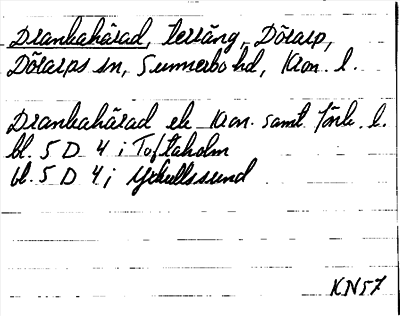 Drankahärad, terräng, Dörarp,
Dörarps sn, Sunnerbo hd, Kron. l.
Drankahärad ek Kron. samt Jönk. l.
bl. 5 D 4 i Toftaholm
bl. 5 D 4 i Yxkullssund
KN57